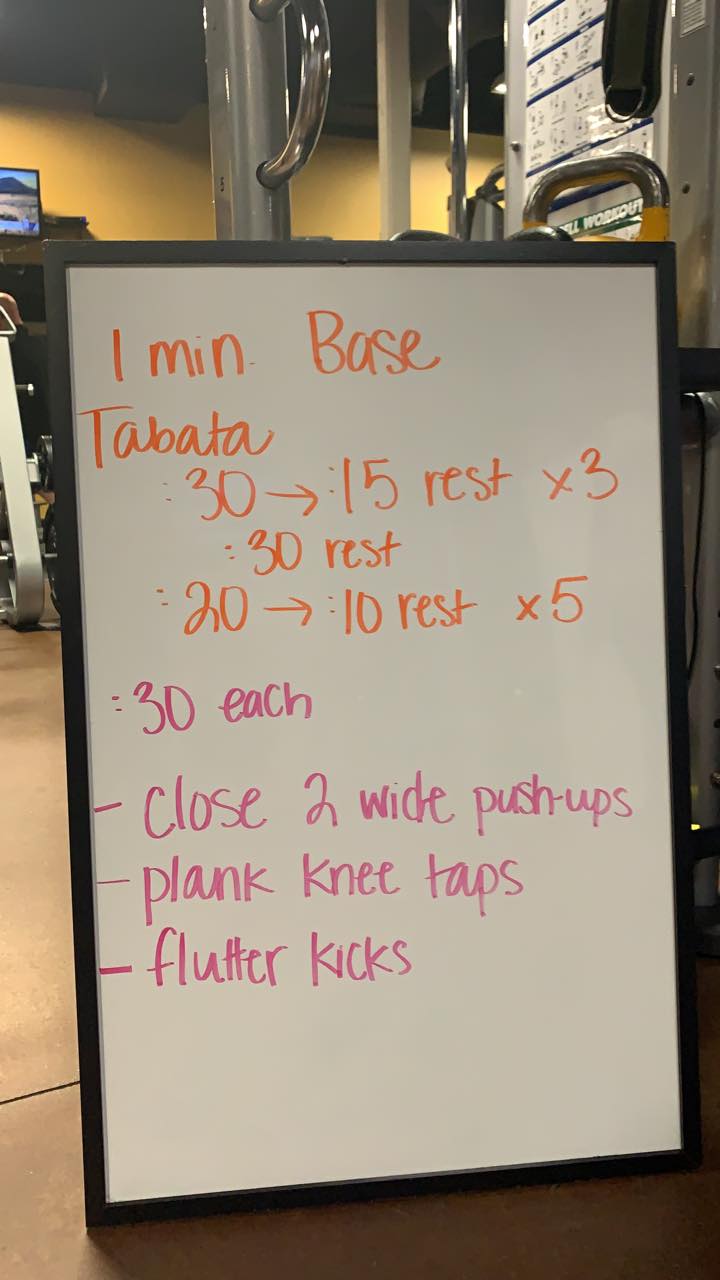 1 min. Base
Tabata
:30 → :15 rest x3
:30 rest
:20 → :10 rest x5
:30 each
- close 2 wide push-ups
- plank knee taps
- flutter kicks